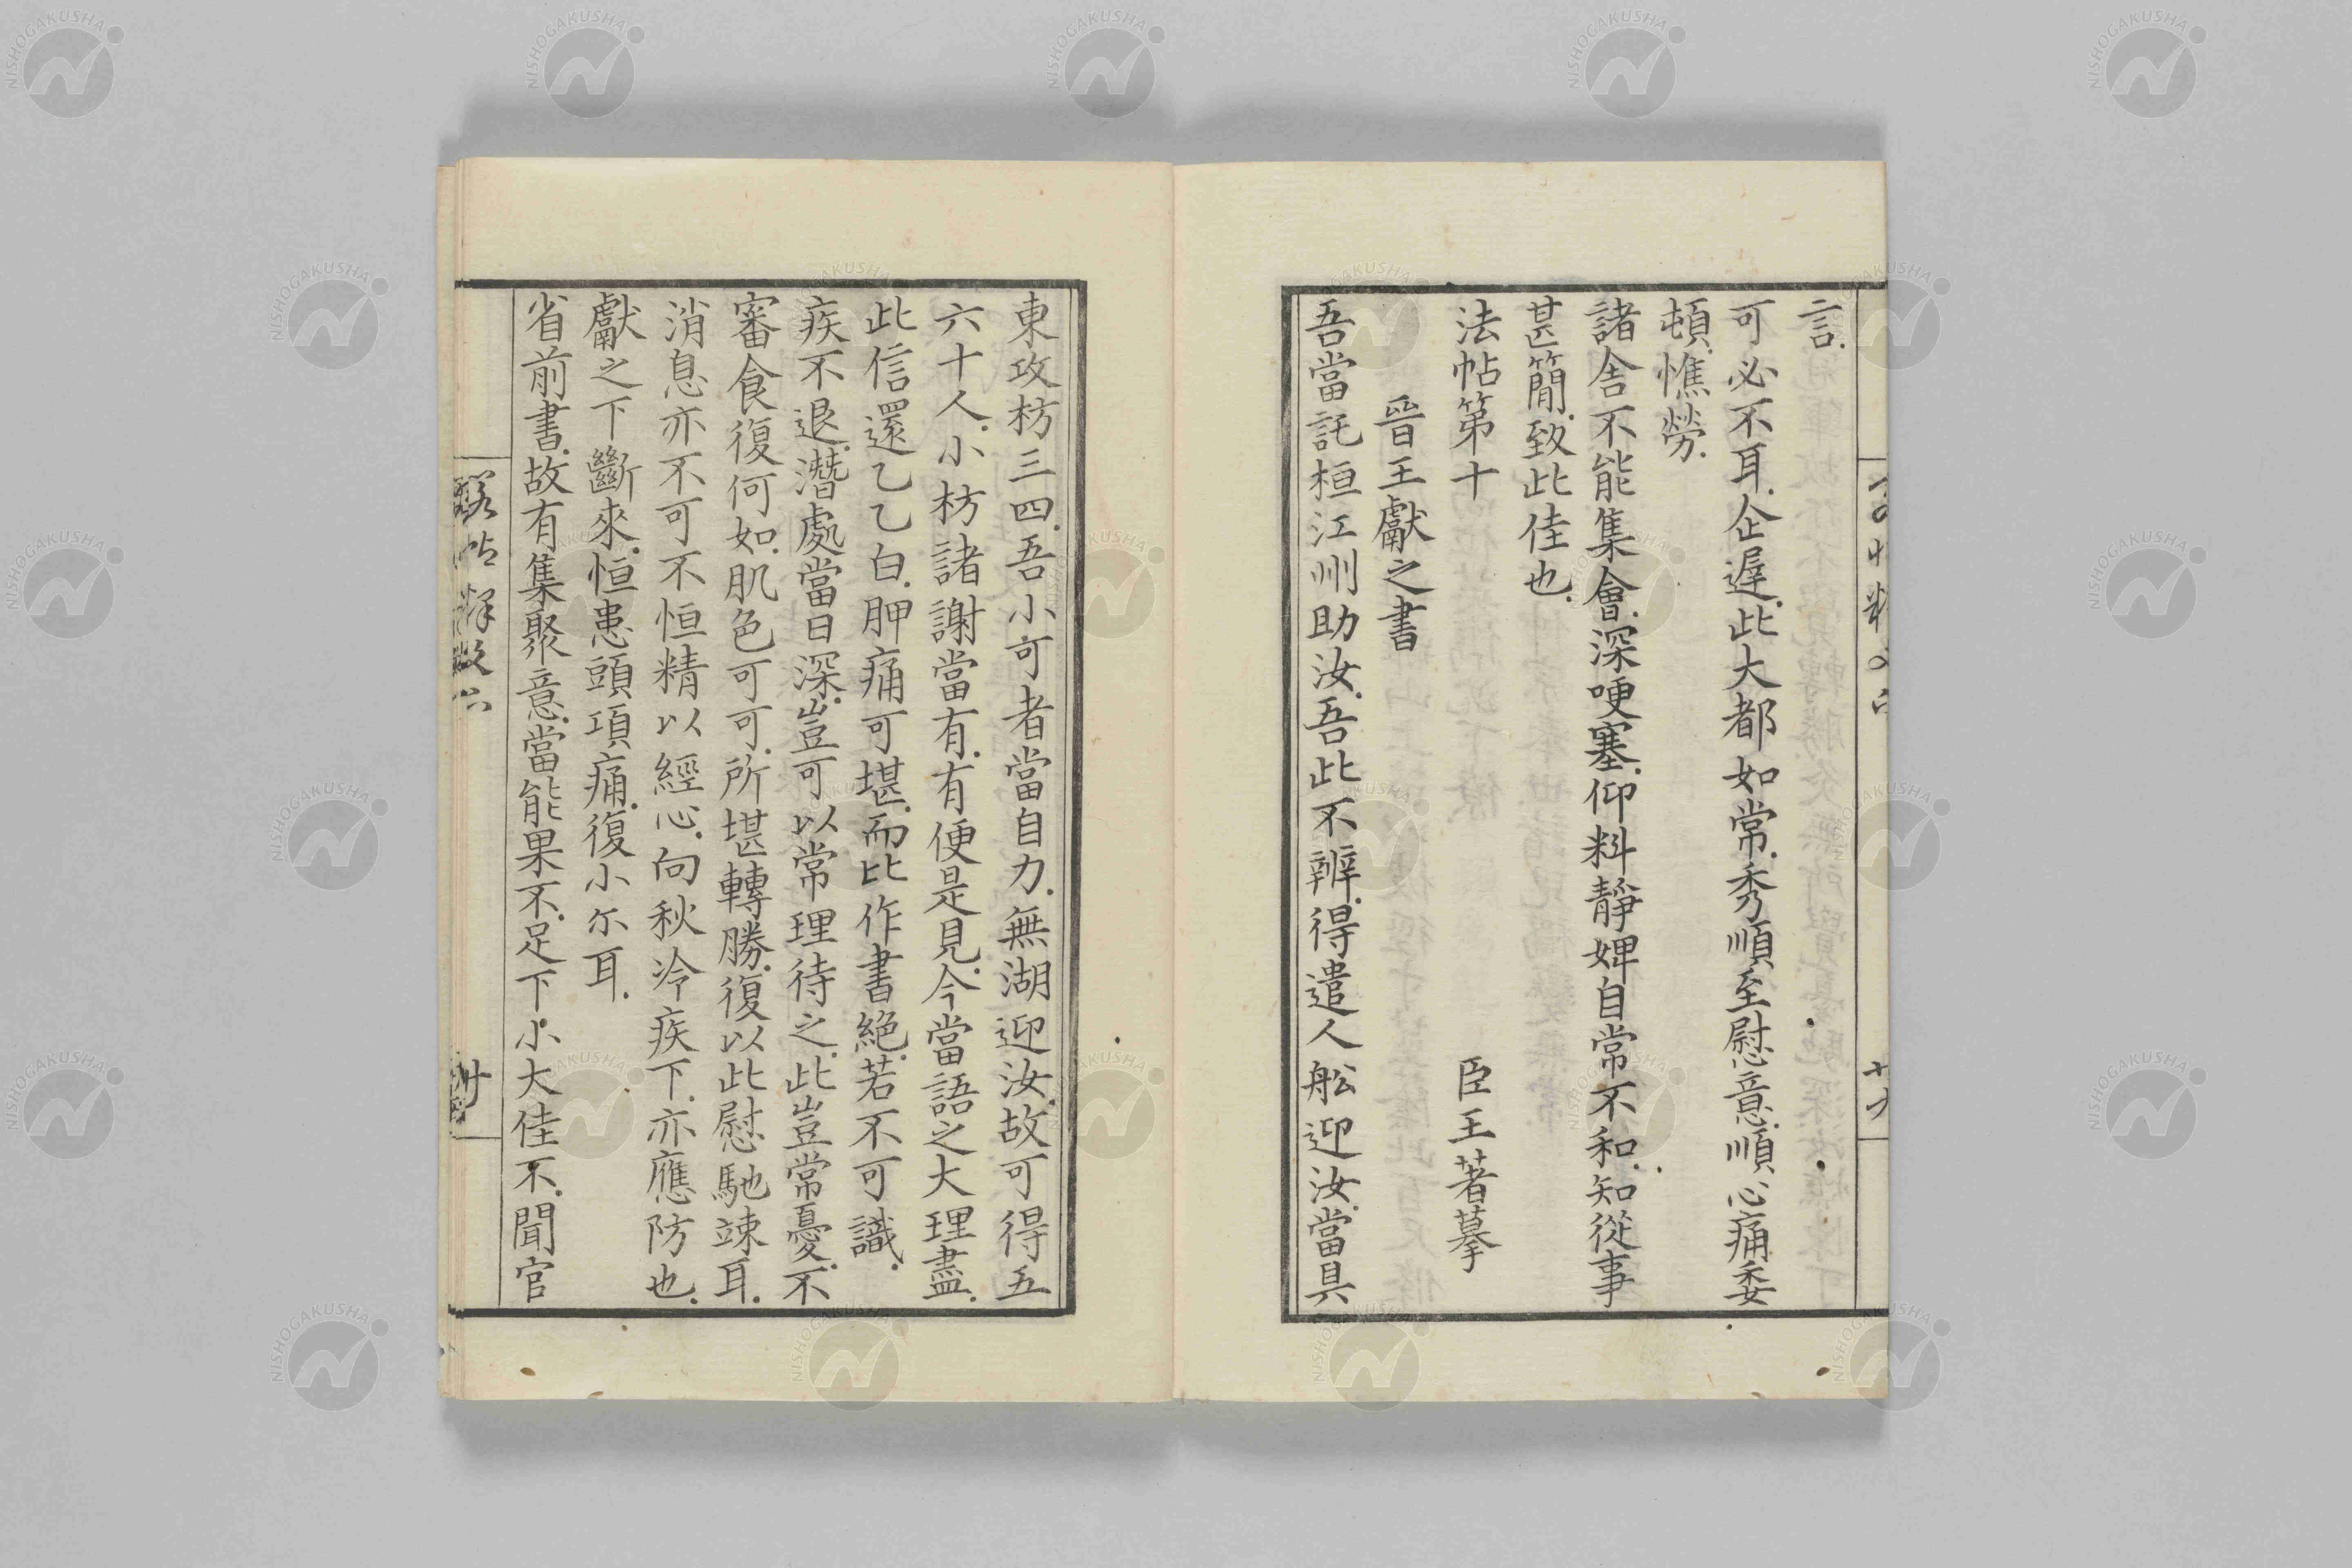 言.
可必不耳.企遲.此大都如常.秀順至慰意.順心痛委
頓.憔勞.
諸舍不能集會.深哽塞.仰料靜婢自常不和.知從事
甚簡.致此佳也.
法帖第十 臣王著摹
晉王獻之書
吾當託桓江州助汝.吾此不辨.得遣人舩迎汝.當具
東攻枋三四.吾小可者當自力.無湖迎汝.故可得五
六十人.小枋諸謝當有.有便是見.今當語之大理盡.
此信還乙乙白.胛痛可堪.而比作書絶.若不可識.
疾不退.潛處當日深.豈可以常理待之.此豈常憂.不
審食復何如.肌色可可.所堪轉勝.復以此慰馳竦耳.
消息亦不可不恒精以經心.向秋冷疾下.亦應防也.
獻之下斷來.恒患頭項痛.復小尓耳.
省前書.故有集聚意.當能果不.足下小大佳不.聞官
帖釋文六
卅
NISHOGAKUSHA